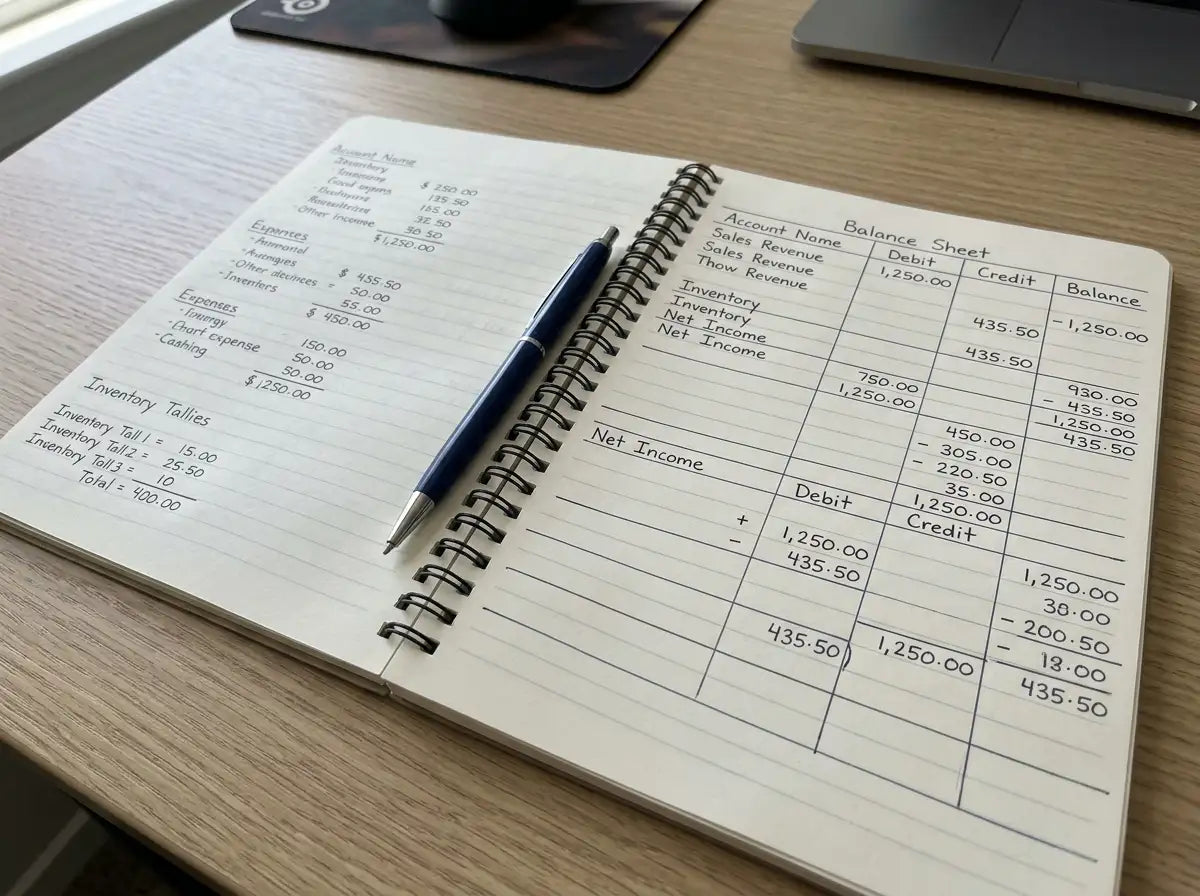 Account Name
Inventory
$ 250.00
135.50
165.00
32.50
- Other income 30.50
$1,250.00
Expenses
$ 455.50
- Other devinces = 50.00
55.00
$ 450.00
Expenses
150.00
- Chart expense 50.00
- Cashing 50.00
$1,250.00
Inventory Tallies
Inventory Tall 1 = 15.00
Inventory Tall2 = 25.50
Inventory Toll3 = 10
Total = 400.00
Balance Sheet
Account Name Debit Credit Balance
Sales Revenue 1,250.00
Sales Revenue
Thow Revenue
435.50 -1,250.00
Inventory
Inventory 435.50
Net Income
Net Income
750.00 930.00
1,250.00 - 435.50
1,250.00
450.00 435.50
- 305.00
- 220.50
35.00
1,250.00
Net Income Debit Credit
+ 1,250.00 1,250.00
- 435.50 38.00
- 200.50
- 18.00
435.50) 1,250.00 435.50